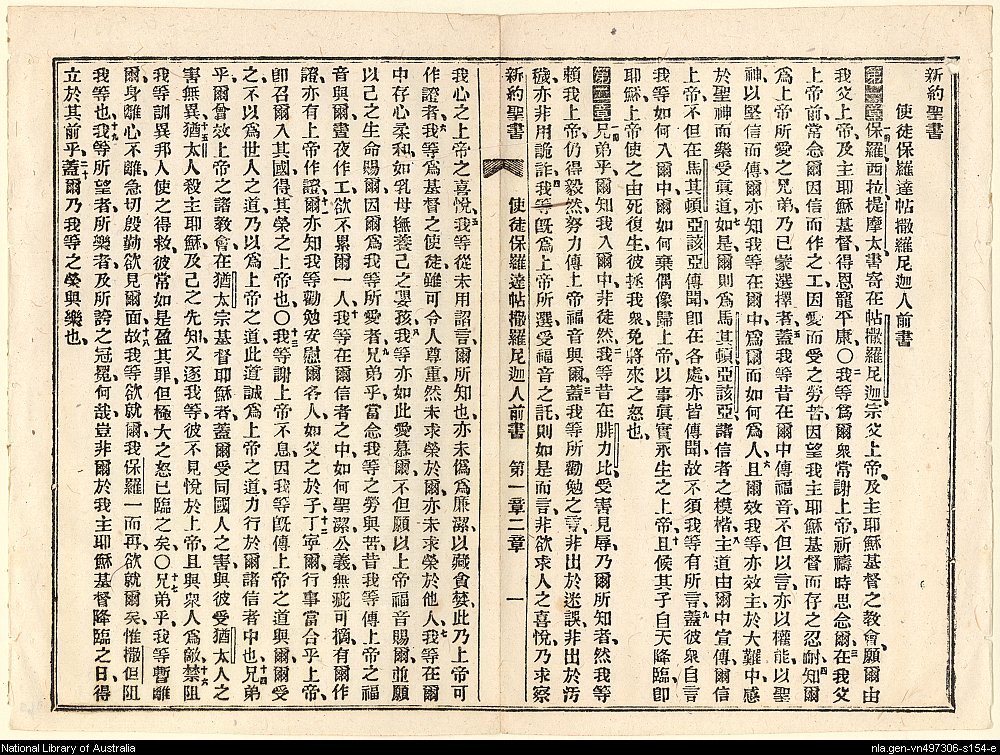 新約聖書
使徒保羅達帖撒羅尼迦人前書
第一章一保羅西拉提摩太書寄在帖撒羅尼迦宗父上帝、及主耶穌基督之教會、願爾由
我父上帝、及主耶穌基督、得恩寵平康〇二我等爲爾衆常謝上帝、祈禱時思念爾、三在我父
上帝前、常念爾因信而作之工、因愛而受之勞苦、因望我主耶穌基督而存之忍耐、四知爾
爲上帝所愛之兄弟、乃已蒙選擇者、五蓋我等昔在爾中傳福音、不但以言、亦以權能、以聖
神、以堅信而傳、爾亦知我等在爾中、爲爾而如何爲人、六且爾效我等、亦效主、於大難中、感
於聖神、而樂受眞道、七如是爾則爲馬其頓亞該亞諸信者之模楷、八主道由爾中宣傳、爾信
上帝、不但在馬其頓亞該亞傳聞、卽在各處、亦皆傳聞、故不須我等有所言、九蓋彼衆自言
我等如何入爾中、爾如何棄偶像歸上帝、以事眞實永生之上帝、十且候其子自天降臨、卽
耶穌、上帝使之由死復生、彼拯我衆免將來之怒也、
第二章一兄弟乎、爾知我入爾中非徒然、二我等昔在腓力比受害見辱、乃爾所知者、然我等
賴我上帝、仍得毅然努力傳上帝福音與爾、三蓋我等所勸勉之言、非出於迷誤、非出於污
穢、亦非用詭詐、四我等旣爲上帝所選、受福音之託、則如是而言、非欲求人之喜悅、乃求察
新約聖書 使徒保羅達帖撒羅尼迦人前書 第一章二章 一
我心之上帝之喜悅、五我等從未用諂言、爾所知也、亦未僞爲廉潔以藏貪婪、此乃上帝可
作證者、六我等爲基督之使徒、雖可令人尊重、然未求榮於爾、亦未求榮於他人、七我等在爾
中、存心柔和、如乳母撫養己之嬰孩、八我等亦如此愛慕爾、不但願以上帝福音賜爾、並願
以己之生命賜爾、因爾爲我等所愛者、九兄弟乎、當念我等之勞與苦、昔我等傳上帝之福
音與爾、晝夜作工、欲不累爾一人、十我等在爾信者之中、如何聖潔公義無疵可摘、有爾作
證、亦有上帝作證、十一爾亦知我等勸勉安慰爾各人、如父之於子、十二丁寧爾行事當合乎上帝、
卽召爾入其國得其榮之上帝也〇十三我等謝上帝不息、因我等旣傳上帝之道與爾、爾受
之、不以爲世人之道、乃以爲上帝之道、此道誠爲上帝之道、力行於爾諸信者中也、十四兄弟
乎、爾曾效上帝之諸教會、在猶太宗基督耶穌者、蓋爾受同國人之害、與彼受猶太人之
害無異、十五猶太人殺主耶穌、及己之先知、又逐我等、彼不見悅於上帝、且與衆人爲敵、十六禁阻
我等訓異邦人使之得救、彼常如是盈其罪、但極大之怒已臨之矣〇十七兄弟乎、我等暫離
爾、身離心不離、急切殷勤、欲見爾面、十八故我等欲就爾、我保羅一而再欲就爾矣、惟撒但阻
我等也、十九我等所望者、所樂者、及所誇之冠冕、何哉、豈非爾於我主耶穌基督降臨之日、得
立於其前乎、二十蓋爾乃我等之榮與樂也、
National Library of Australia
nla.gen-vn497306-s154-e